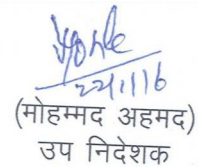 22/11/16
(मोहम्मद अहमद)
उप निदेशक